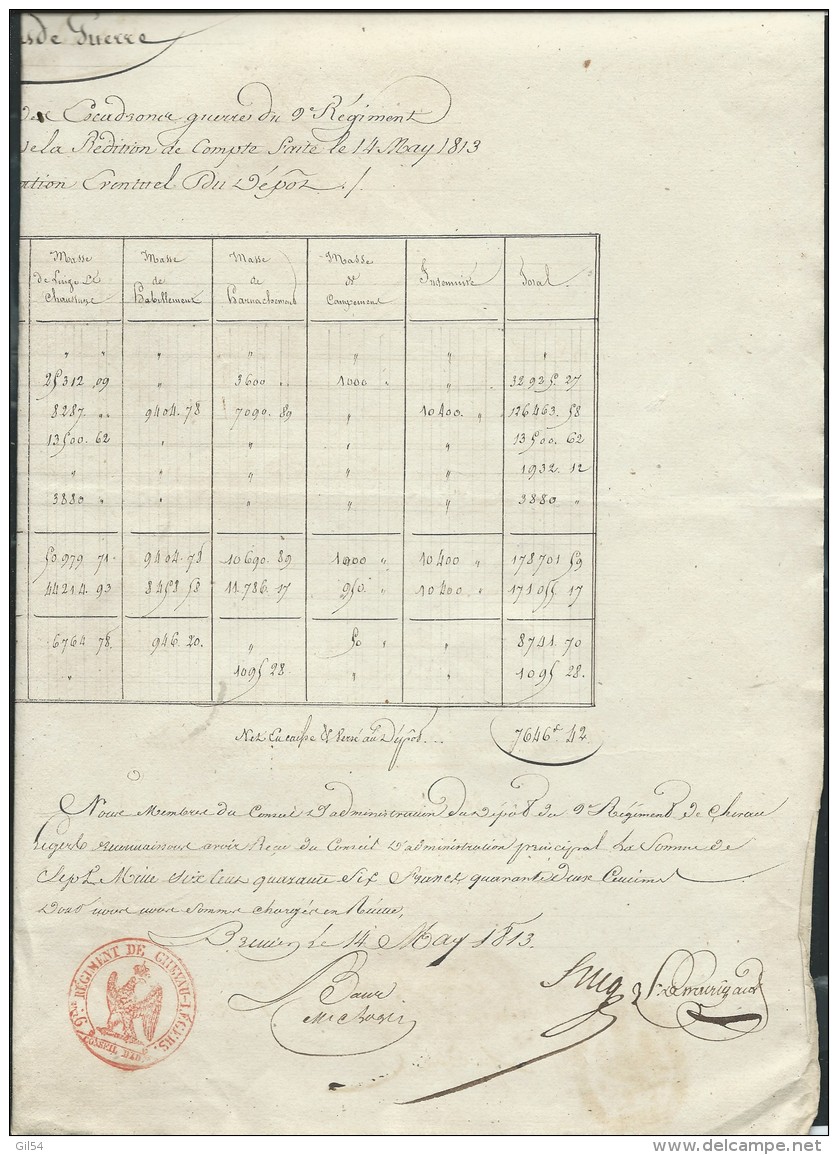 de Guerre
Escadrons guerres du 9e Régiment
de la Rédition de Compte faite le 14 May 1813
ation Eventuel Du Dépôt ./.
Masse de Linge Et Chaussure | Masse de Habillement | Masse de Harnachement | Masse de Campement | Indemnité | Total
" | " | " | " | " | "
25312 .09 | " | 3600 " | 1000 " | " | 32925. 27
8287. " | 9404. 78 | 7090. 89 | " | 10400. " | 126463. 58
13500. 62 | " | " | " | " | 13500. 62
" | " | " | " | " | 1932. 12
3880 " | " | " | " | " | 3880 "
50979 71. | 9404. 78 | 10690. 89 | 1000 " | 10400 " | 178701 59
44214. 93 | 8458 58 | 11.786. 17 | 950. " | 10400. " | 171055 17
6764 78. | 946. 20. | " | 50 " | " | 8741. 70
" | | 1095 28. | " | " | 1095 28.
Net En caisse & versé au Dépôt... 7646f. 42
Nous Membres du Conseil D'administration du Dépôt du 9e Régiment de Chevau
Legers reconnaissons avoir Reçu du Conseil D'administration principal La Somme de
Sept Mille Six Cent quarante Six Francs quarante Deux Centimes
Dont nous nous sommes chargés en Recette,
Bremen Le 14 May 1813.
9ME RÉGIMENT DE CHEVAU-LÉGERS.
CONSEIL D'ADM
Gil54
www.delcampe.net